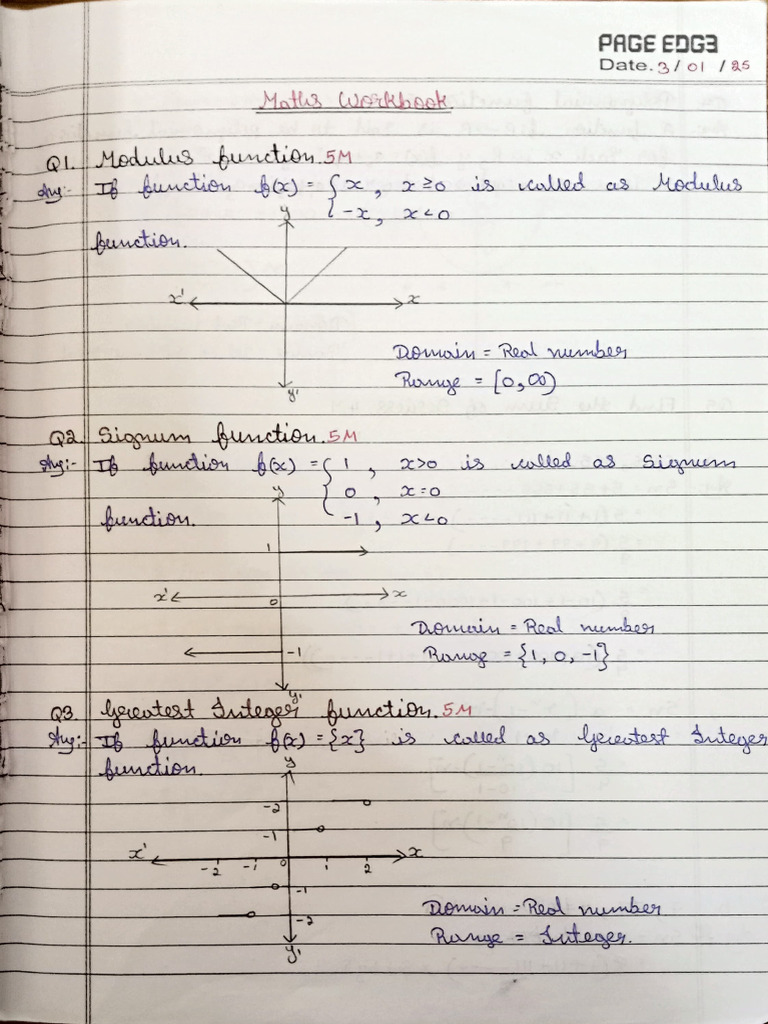 PAGE EDG3
Date. 3/01/25
Maths Workbook
Q1. Modulus function. 5M
Ans:- If function f(x) = { x, x ≥ 0 is called as Modulus
-x, x < 0
function.
y
x' x
Domain = Real number
Range = [0, ∞)
y'
Q2. Signum function. 5M
Ans:- If function f(x) = { 1, x>0 is called as Signum
y 0, x=0
function. -1, x<0
1
x' 0 x
Domain = Real number
-1 Range = {1, 0, -1}
y'
Q3. Greatest Integer function. 5M
Ans:- If function f(x) = {x} is called as Greatest Integer
function.
y
-2
-1
x' -2 -1 0 1 2 x
-1
-2
Domain = Real number
Range = Integer.
y'